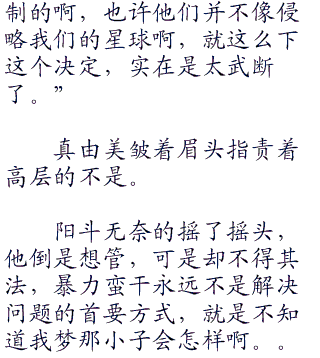 制的啊，也许他们并不像侵
略我们的星球啊，就这么下
这个决定，实在是太武断
了。”
真由美皱着眉头指责着
高层的不是。
阳斗无奈的摇了摇头，
他倒是想管，可是却不得其
法，暴力蛮干永远不是解决
问题的首要方式，就是不知
道我梦那小子会怎样啊。。